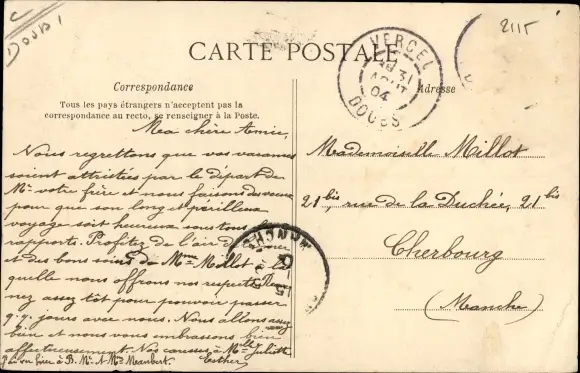 Doubs
2115
CARTE POSTALE
VERCEL
31
AOUT
04
DOUBS
Correspondance
Adresse
Tous les pays étrangers n'acceptent pas la
correspondance au recto, se renseigner à la Poste.
Ma chère Amie,
Nous regrettons que vos vacances
soient attristées par le départ de
Mr votre frère et nous faisons des vœux
pour que son long et périlleux
voyage soit heureux sous tous
rapports. Profitez de l'air de la
et des bons soins de Mme Millot à la
quelle nous offrons nos respects. Reve
nez assez tôt pour pouvoir passer
q.q. jours avec nous. Nous allons assez
bien et nous vous embrassons bien
affectueusement. Nos caresses à Mlle Juliette
Esther
J'ai vu hier à B. Mr et Mme Maubert.
Mademoiselle Millot
21 bis, rue de la Duchée, 21 bis
Cherbourg
(Manche)